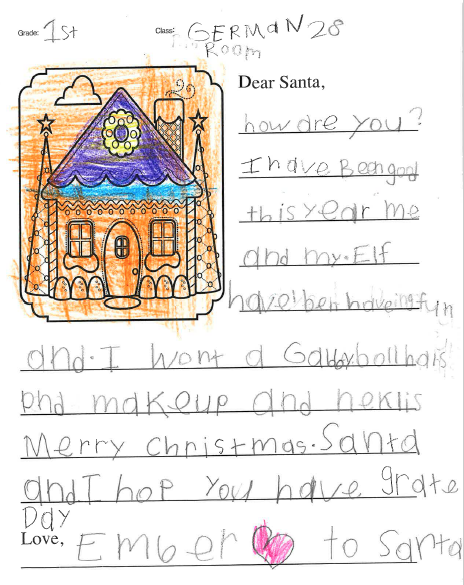 Grade: 1st
Class: GERMAN 28
Room
Dear Santa,
how are you?
I have Been good
this year me
and my. Elf
have! ben haveing fun
and. I wont a Gabbybollhais
phd makeup and neklis
Merry christmas. Santa
and I hop you have grate
Day
Love, Ember to Santa